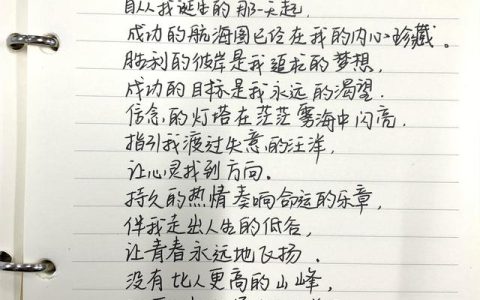 自从我诞生的那一天起,
成功的航海图已经在我的内心珍藏。
胜利的彼岸是我追求的梦想,
成功的目标是我永远的渴望.
信念的灯塔在茫茫雾海中闪亮,
指引我渡过失意的汪洋,
让心灵找到方向。
持久的热情奏响命运的乐章,
伴我走出人生的低谷,
让青春永远地飞扬.
没有比人更高的山峰,